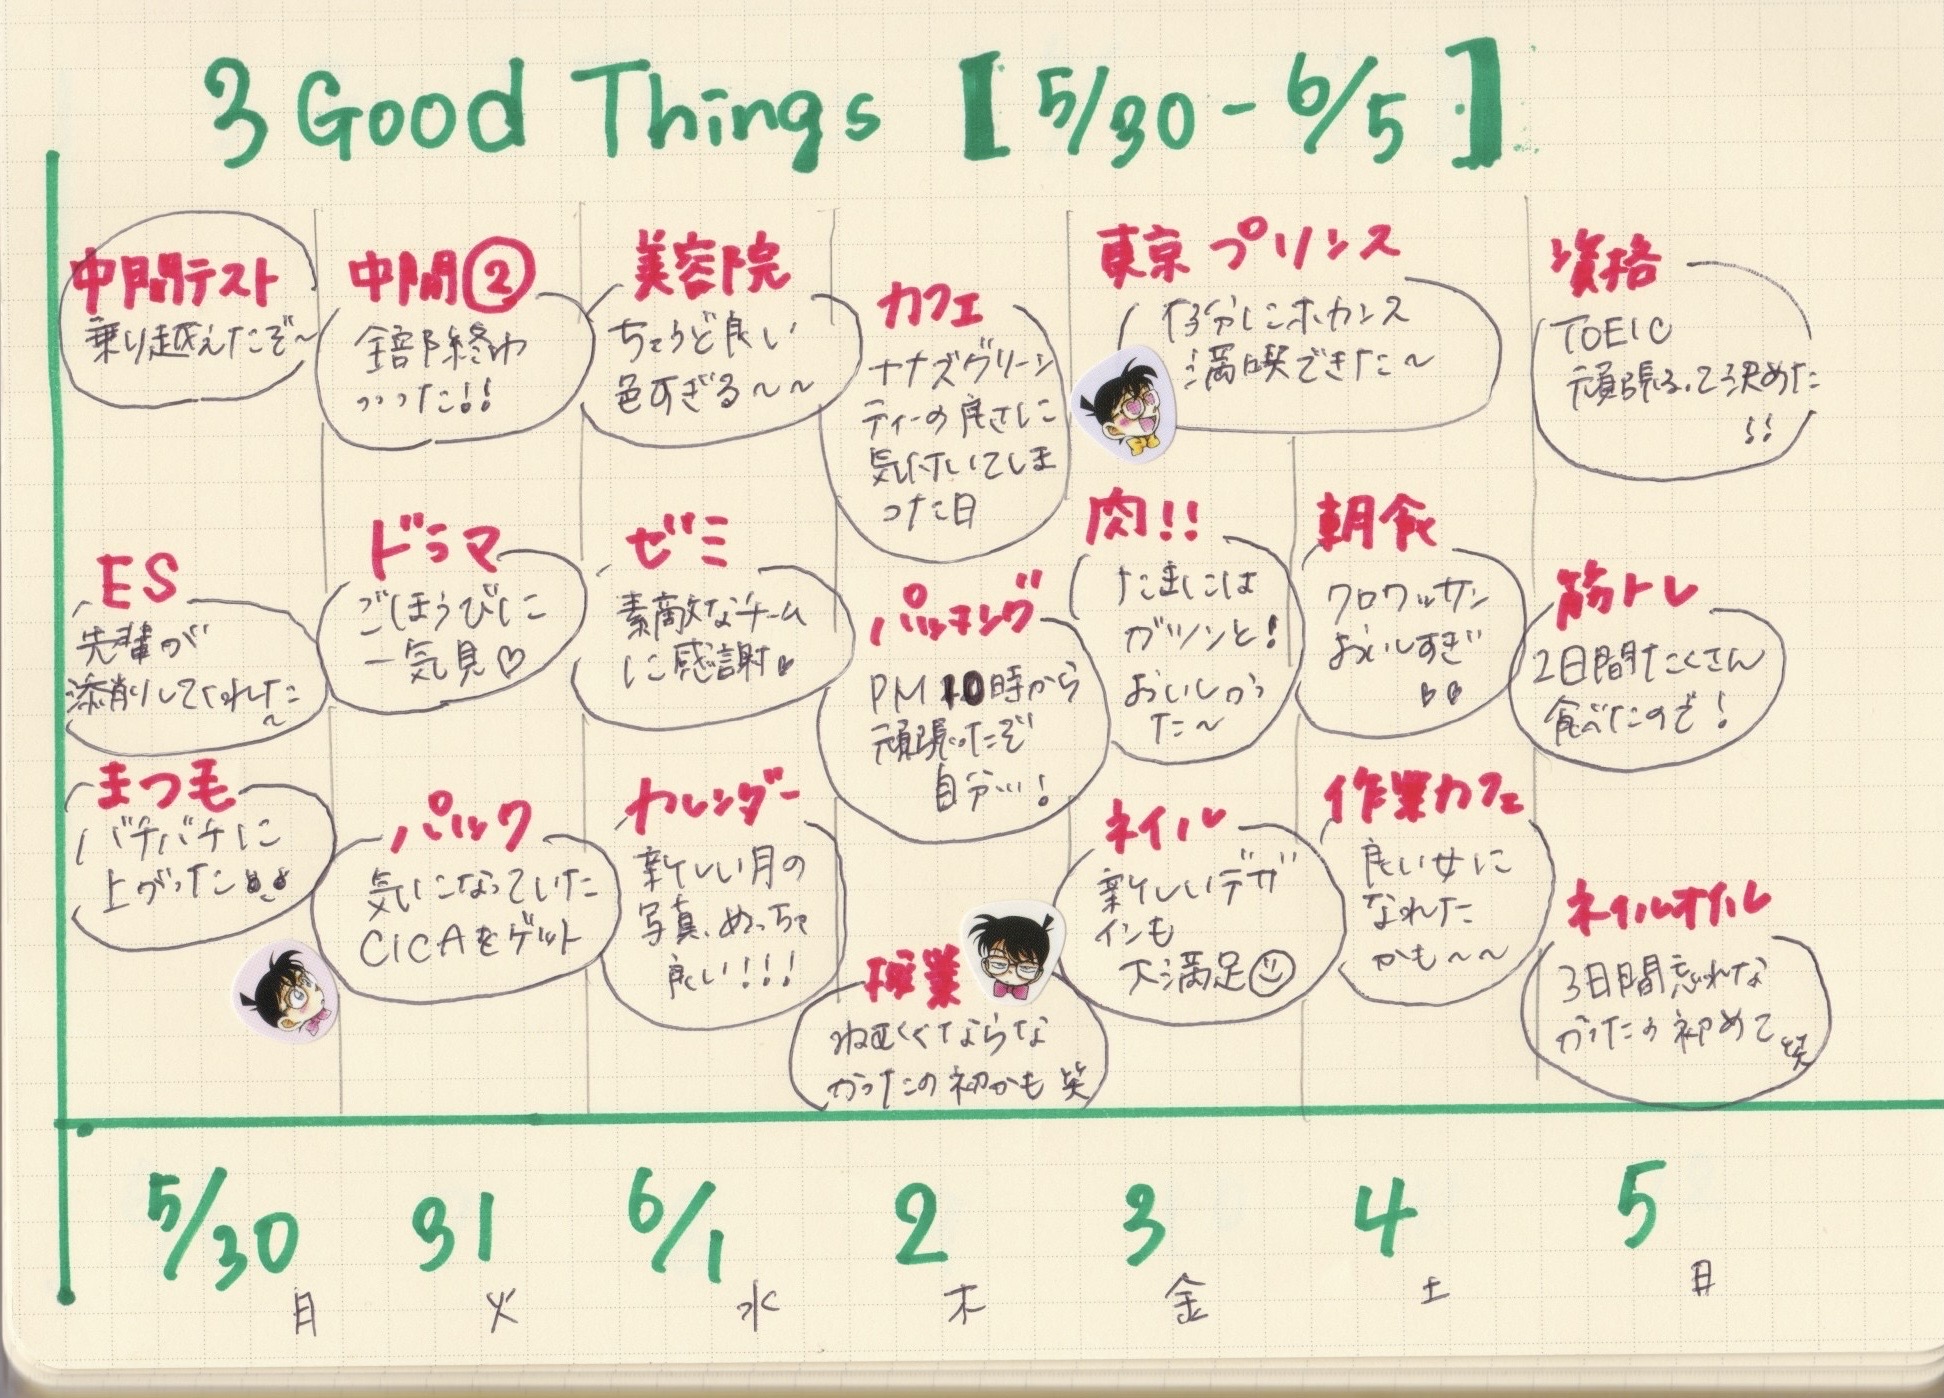 3 Good Things【5/30 - 6/5】
中間テスト
乗り越えたぞ〜
ES
先輩が
添削してくれた
〜
まつ毛
バチバチに
上がった
中間②
全部終わ
っった!!
ドラマ
ごほうびに
一気見♡
パック
気になっていた
CICAをゲット
美容院
ちょうど良い
色すぎる〜〜
ゼミ
素敵なチーム
に感謝
カレンダー
新しい月の
写真、めっちゃ
良い!!!
カフェ
ナナズグリーン
ティーの良さに
気付いてしま
った日
パッキング
PM 10時から
頑張ったぞ
自分…!
授業
ねむくならな
かったの初かも 笑
東京プリンス
存分にホカンス
満喫できた〜
肉!!
たまには
ガツンと!
おいしかっ
た〜
ネイル
新しいデザ
インも
大満足☺
朝食
クロワッサン
おいしすぎ
作業カフェ
良い女に
なれた
かも〜〜
資格
TOEIC
頑張るって決めた
!!
筋トレ
2日間たくさん
食べたので!
ネイルオイル
3日間忘れな
かったの初めて
笑
5/30 31 6/1 2 3 4 5
月 火 水 木 金 土 日